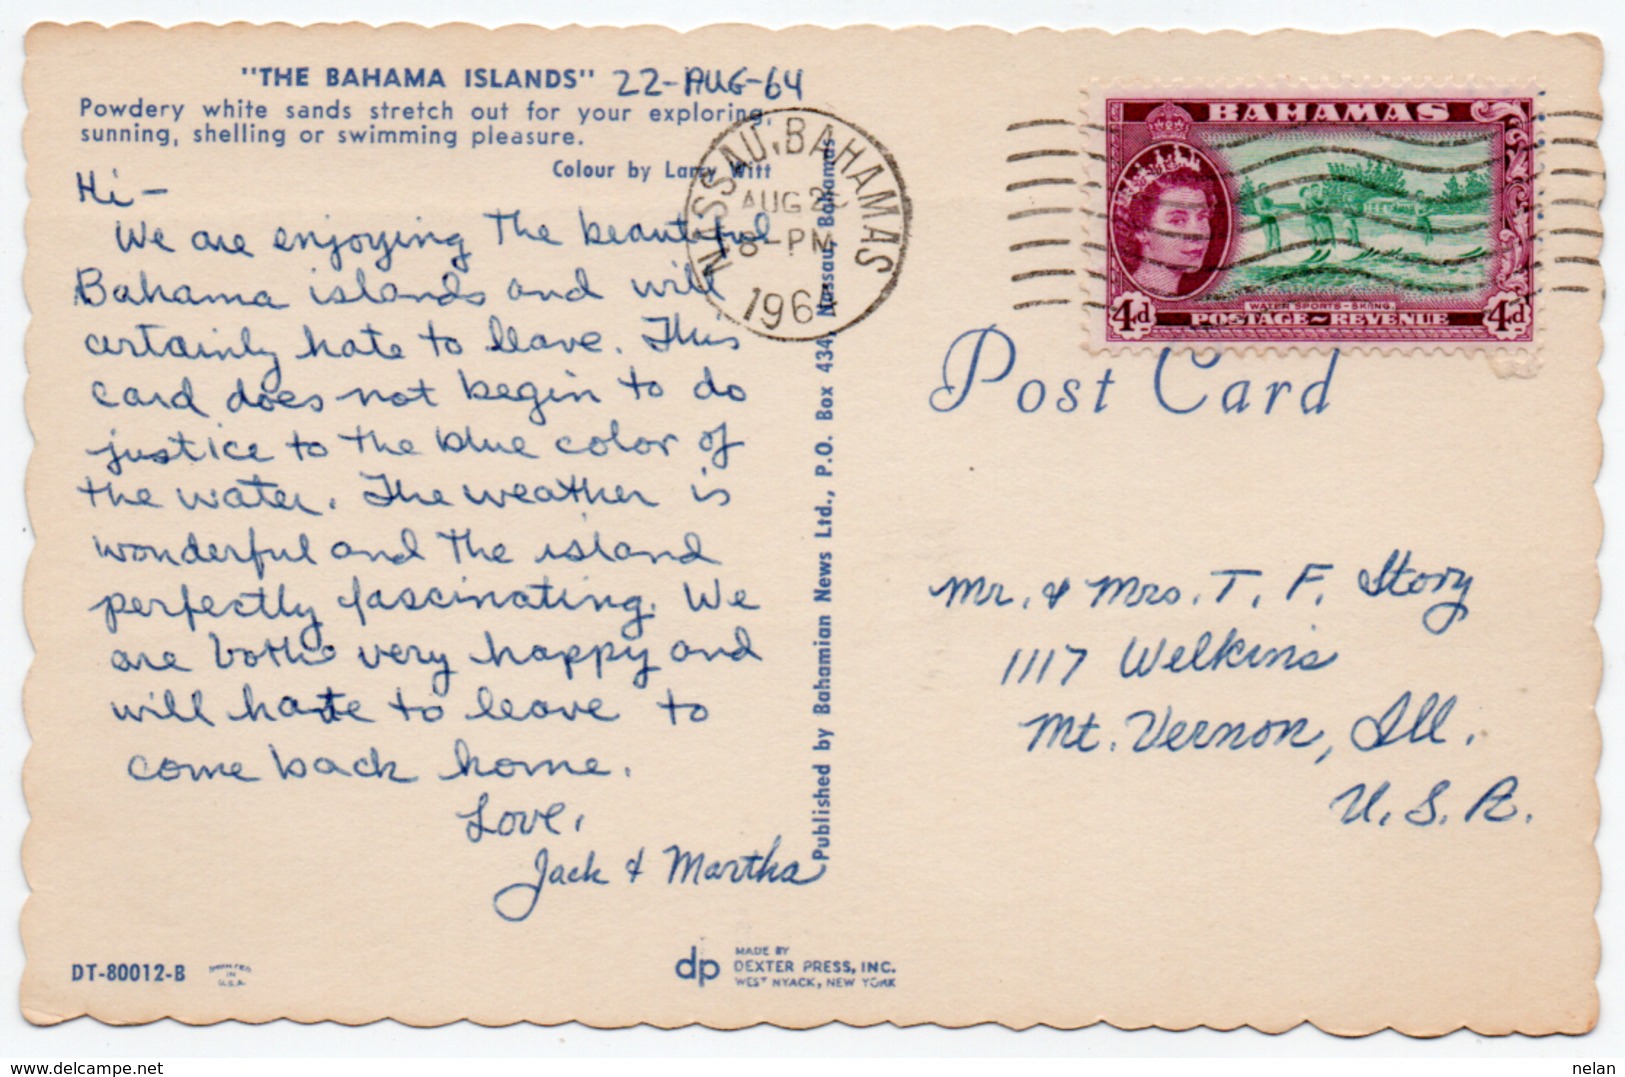 "THE BAHAMA ISLANDS" 22-AUG-64
Powdery white sands stretch out for your exploring,
sunning, shelling or swimming pleasure.
Colour by Larry Witt
Hi —
We are enjoying the beautiful
Bahama islands and will
certainly hate to leave. This
card does not begin to do
justice to the blue color of
the water. The weather is
wonderful and the island
perfectly fascinating. We
are both very happy and
will hate to leave to
come back home.
Love,
Jack & Martha
DT-80012-B
PRINTED
IN
U.S.A.
dp
MADE BY
DEXTER PRESS, INC.
WEST NYACK, NEW YORK
Published by Bahamian News Ltd., P.O. Box 434, Nassau, Bahamas
NASSAU, BAHAMAS
AUG 2
8-PM
1964
BAHAMAS
WATER SPORTS - SKIING.
4d 4d
POSTAGE~REVENUE
Post Card
Mr. & Mrs. T. F. Story
1117 Welkins
Mt. Vernon, Ill.
U. S. A.
www.delcampe.net
nelan